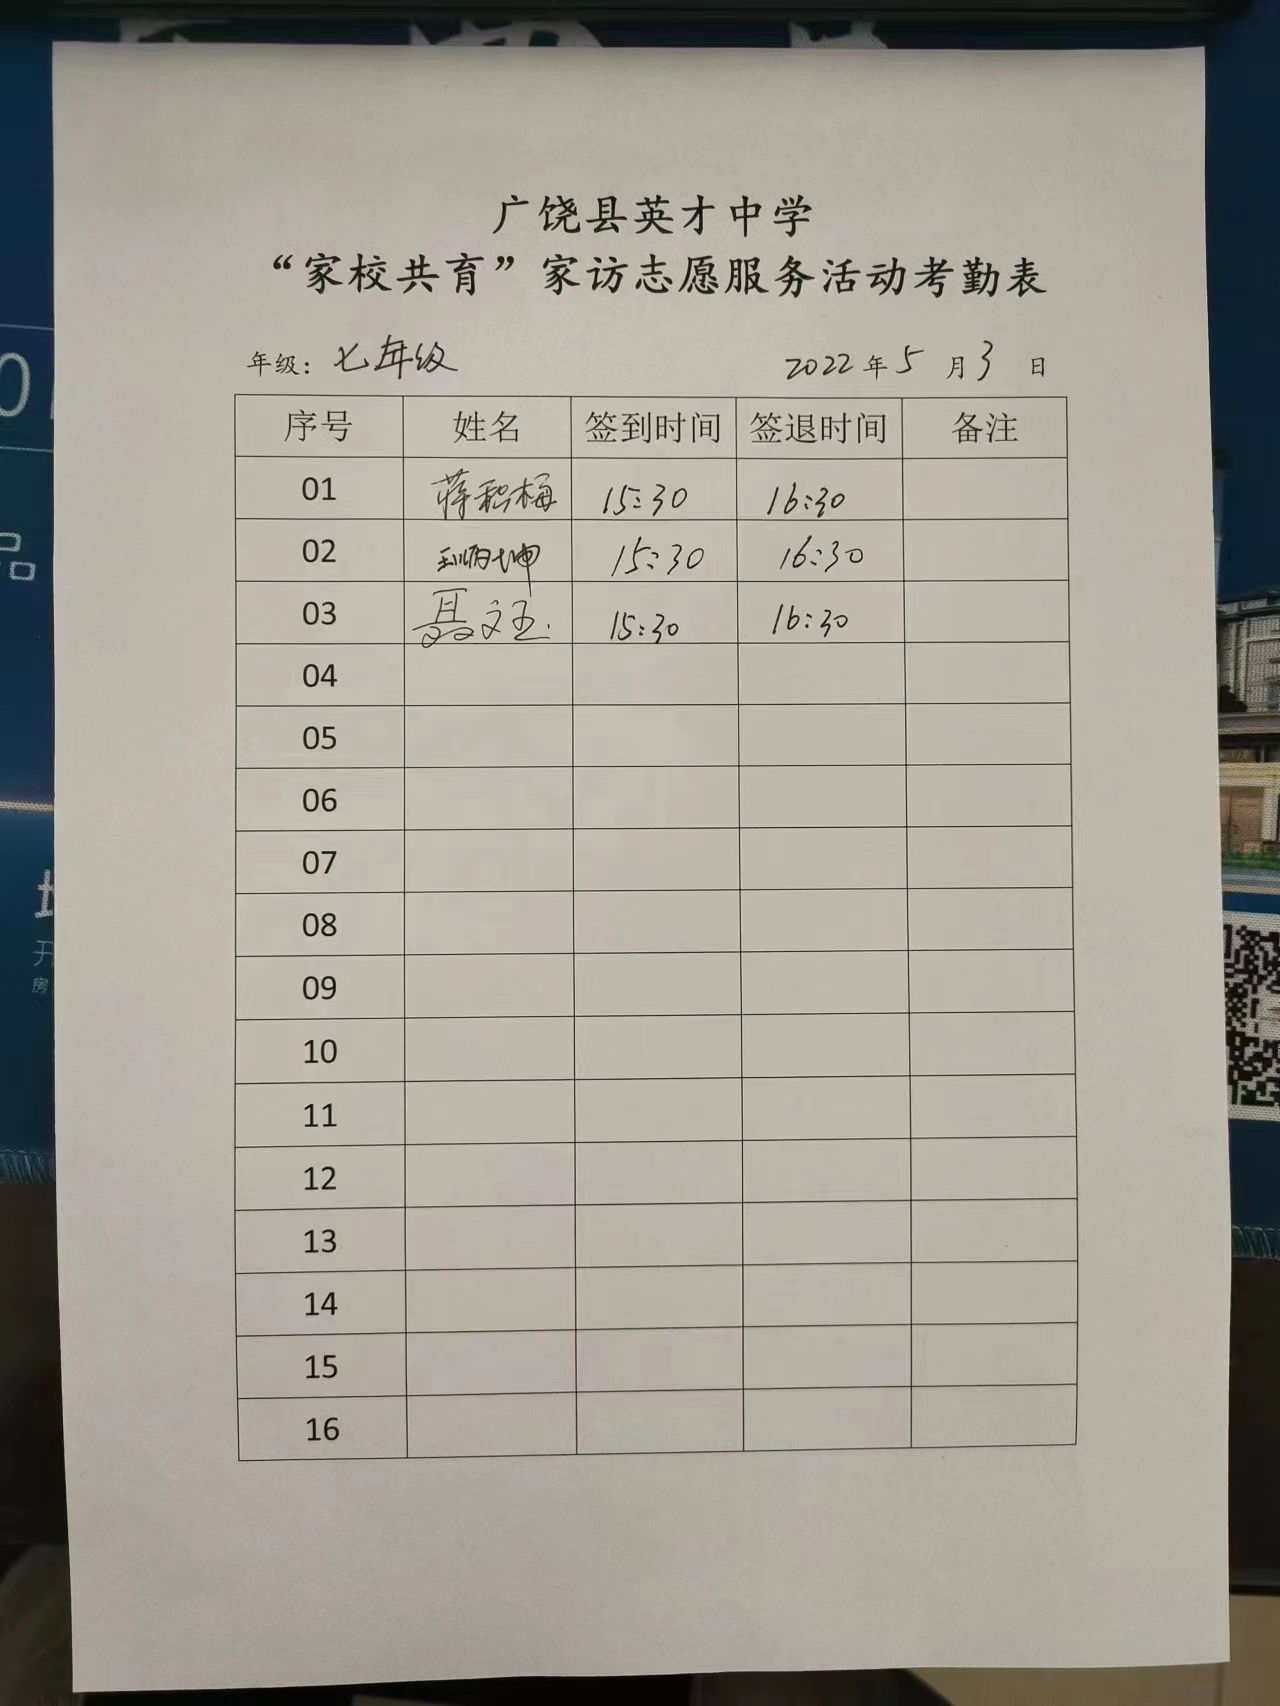 广饶县英才中学
“家校共育”家访志愿服务活动考勤表
年级：七年级 2022年5月3日
序号 姓名 签到时间 签退时间 备注
01 蒋积梅 15:30 16:30
02 坤 15:30 16:30
03 聂文玉 15:30 16:30
04
05
06
07
08
09
10
11
12
13
14
15
16
品
开
房